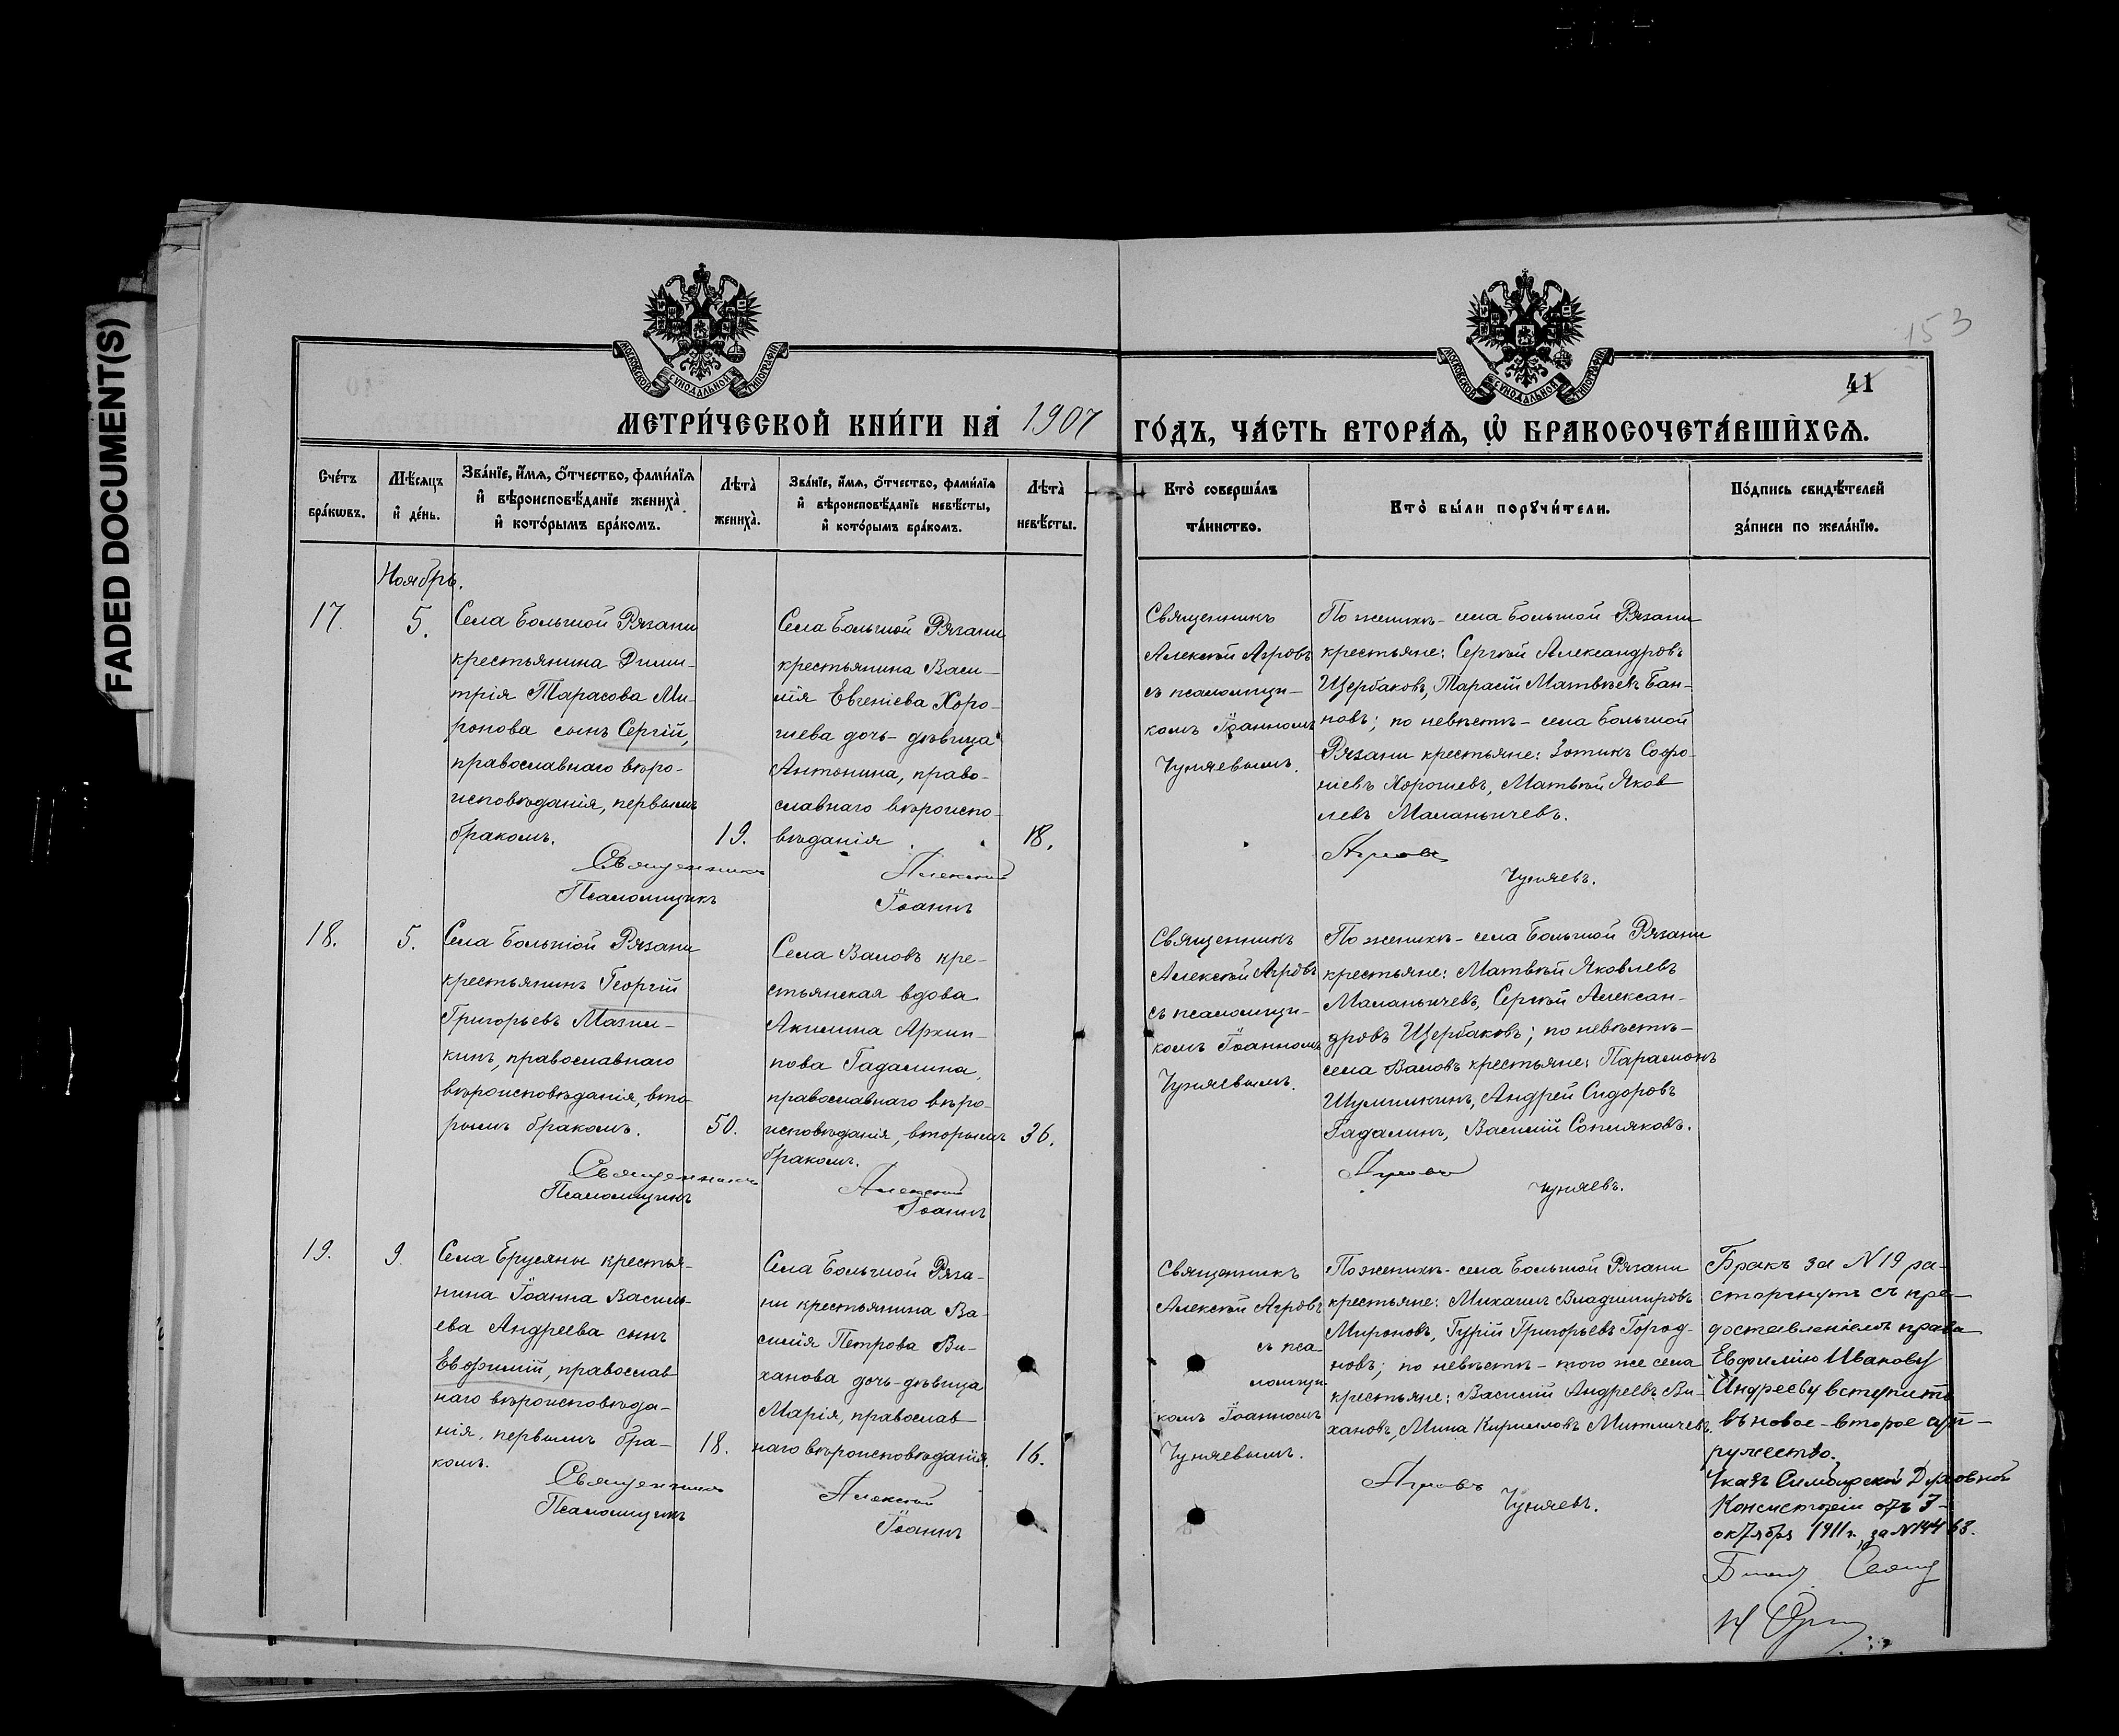 FADED DOCUMENT(S)
153
41
МОСКОВСКОЙ СѴНОДАЛЬНОЙ ТИПОГРАФІИ
МОСКОВСКОЙ СѴНОДАЛЬНОЙ ТИПОГРАФІИ
МЕТРИ́ЧЕСКОЙ КНИ́ГИ НА̀ 1907
ГО́ДЪ, ЧА́СТЬ ВТОРА́Я, Ѡ҆ БРАКОСОЧЕТА́ВШИХСЯ.
Сче́тъ
бра́кѡвъ.
Мѣ́сяцъ
и҆ де́нь.
Зва́нїе, и҆́мя, ѻ҆́тчество, фами́лїя
и҆ вѣроисповѣ́данїе жениха̀
и҆ кото́рымъ бра́комъ.
Лѣта̀
жениха̀.
Зва́нїе, и҆́мя, ѻ҆́тчество, фами́лїя
и҆ вѣроисповѣ́данїе невѣ́сты,
и҆ кото́рымъ бра́комъ.
Лѣта̀
невѣ́сты.
Кто̀ соверша́лъ
та́инство.
Кто̀ бы́ли порꙋчи́тели.
По́дпись свидѣ́телей
за́писи по жела́нїю.
Ноябрь.
17.
5.
Села Большой Рязани
крестьянина Дими-
трія Тарасова Ми-
ронова сынъ Сергій,
православнаго вѣро-
исповѣданія, первымъ
бракомъ.
19.
Села Большой Рязани
крестьянина Васи-
лія Евгеніева Хоро-
шева дочь-дѣвица
Антонина, право-
славнаго вѣроиспо-
вѣданія
18.
Священникъ
Алексѣй Агровъ
съ псаломщи-
комъ Іоанномъ
Чуняевымъ.
По женихѣ- села Большой Рязани
крестьяне: Сергѣй Александровъ
Щербаковъ, Тарасій Матвѣевъ Бан-
новъ; по невѣстѣ- села Большой
Рязани крестьяне: Зотикъ Софро-
ніевъ Хорошевъ, Матвѣй Яков
левъ Маланьичевъ.
Священникъ Алексѣй Агровъ
Псаломщикъ Іоаннъ Чуняевъ.
18.
5.
Села Большой Рязани
крестьянинъ Георгій
Григорьевъ Мазил-
кинъ, православнаго
вѣроисповѣданія, вто-
рымъ бракомъ.
50.
Села Валовъ кре-
стьянская вдова
Акилина Архип-
пова Гадалина,
православнаго вѣро-
исповѣданія, вторымъ
бракомъ.
36.
Священникъ
Алексѣй Агровъ
съ псаломщи-
комъ Іоанномъ
Чуняевымъ.
По женихѣ- села Большой Рязани
крестьяне: Матвѣй Яковлевъ
Маланьичевъ, Сергѣй Алексан-
дровъ Щербаковъ; по невѣстѣ-
села Валовъ крестьяне: Парамонъ
Шумилкинъ, Андрей Сидоровъ
Гадалинъ, Василій Сопляковъ.
Священникъ Алексѣй Агровъ
Псаломщикъ Іоаннъ Чуняевъ.
19.
9.
Села Ерусланы крестья-
нина Іоанна Василь-
ева Андреева сынъ
Евфимій, православ
наго вѣроисповѣда-
нія, первымъ бра-
комъ.
18.
Села Большой Ряза-
ни крестьянина Ва-
силія Петрова Ви-
ханова дочь-дѣвица
Марія, православ
наго вѣроисповѣданія.
16.
Священникъ
Алексѣй Агровъ
съ пса-
ломщи-
комъ Іоанномъ
Чуняевымъ.
По женихѣ- села Большой Рязани
крестьяне: Михаилъ Владимировъ
Мироновъ, Гурій Григорьевъ Город-
новъ; по невѣстѣ- того же села
крестьяне: Василій Андреевъ Ви-
хановъ, Мина Кирилловъ Митличевъ.
Священникъ Алексѣй Агровъ
Псаломщикъ Іоаннъ Чуняевъ.
Бракъ за N 19 ра-
сторгнутъ съ пре-
доставленіемъ права
Евфимію Иванову
Андрееву вступить
въ новое-второе суп-
ружество.
Указъ Симбирской Духовной
Консисторіи отъ 7-
октября 1911 г. за N 14463.